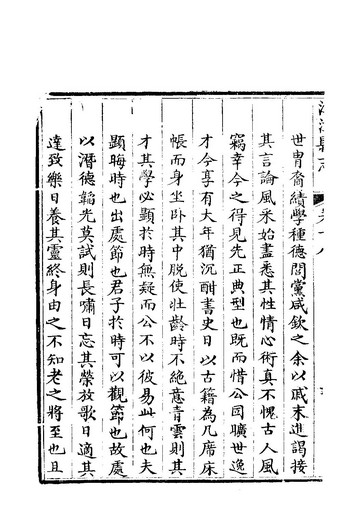 世胄裔績學種德閭黨咸欽之余以戚末進謁接
其言論風采始盡悉其性情心術真不愧古人風
竊幸今之得見先正典型也既而惜公因曠世逸
才今享有大年猶沉酣書史日以古籍為几席床
帳而身坐卧其中脫使壯齡時不絶意青雲則其
才其學必顯於時無疑而公不以彼易此何也夫
顯晦時也出處節也君子於時可以觀節也故處
以潛德韜光莫試則長嘯日忘其榮放歌日適其
達致樂日養其靈終身由之不知老之將至也且